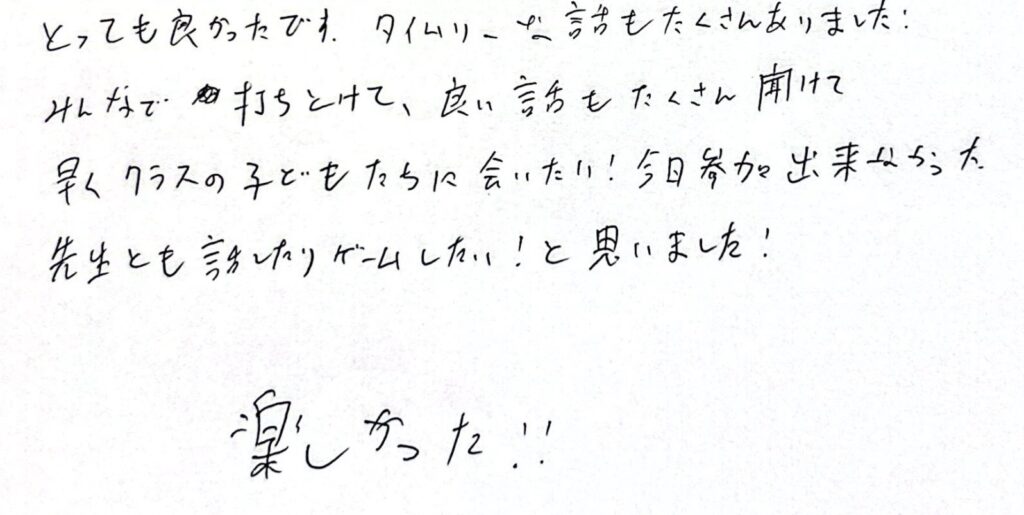 とっても良かったです。タイムリーな話もたくさんありました!
みんなで打ちとけて、良い話もたくさん聞けて
早くクラスの子どもたちに会いたい!今日参加出来なかった
先生とも話したりゲームしたい!と思いました!
楽しかった!!